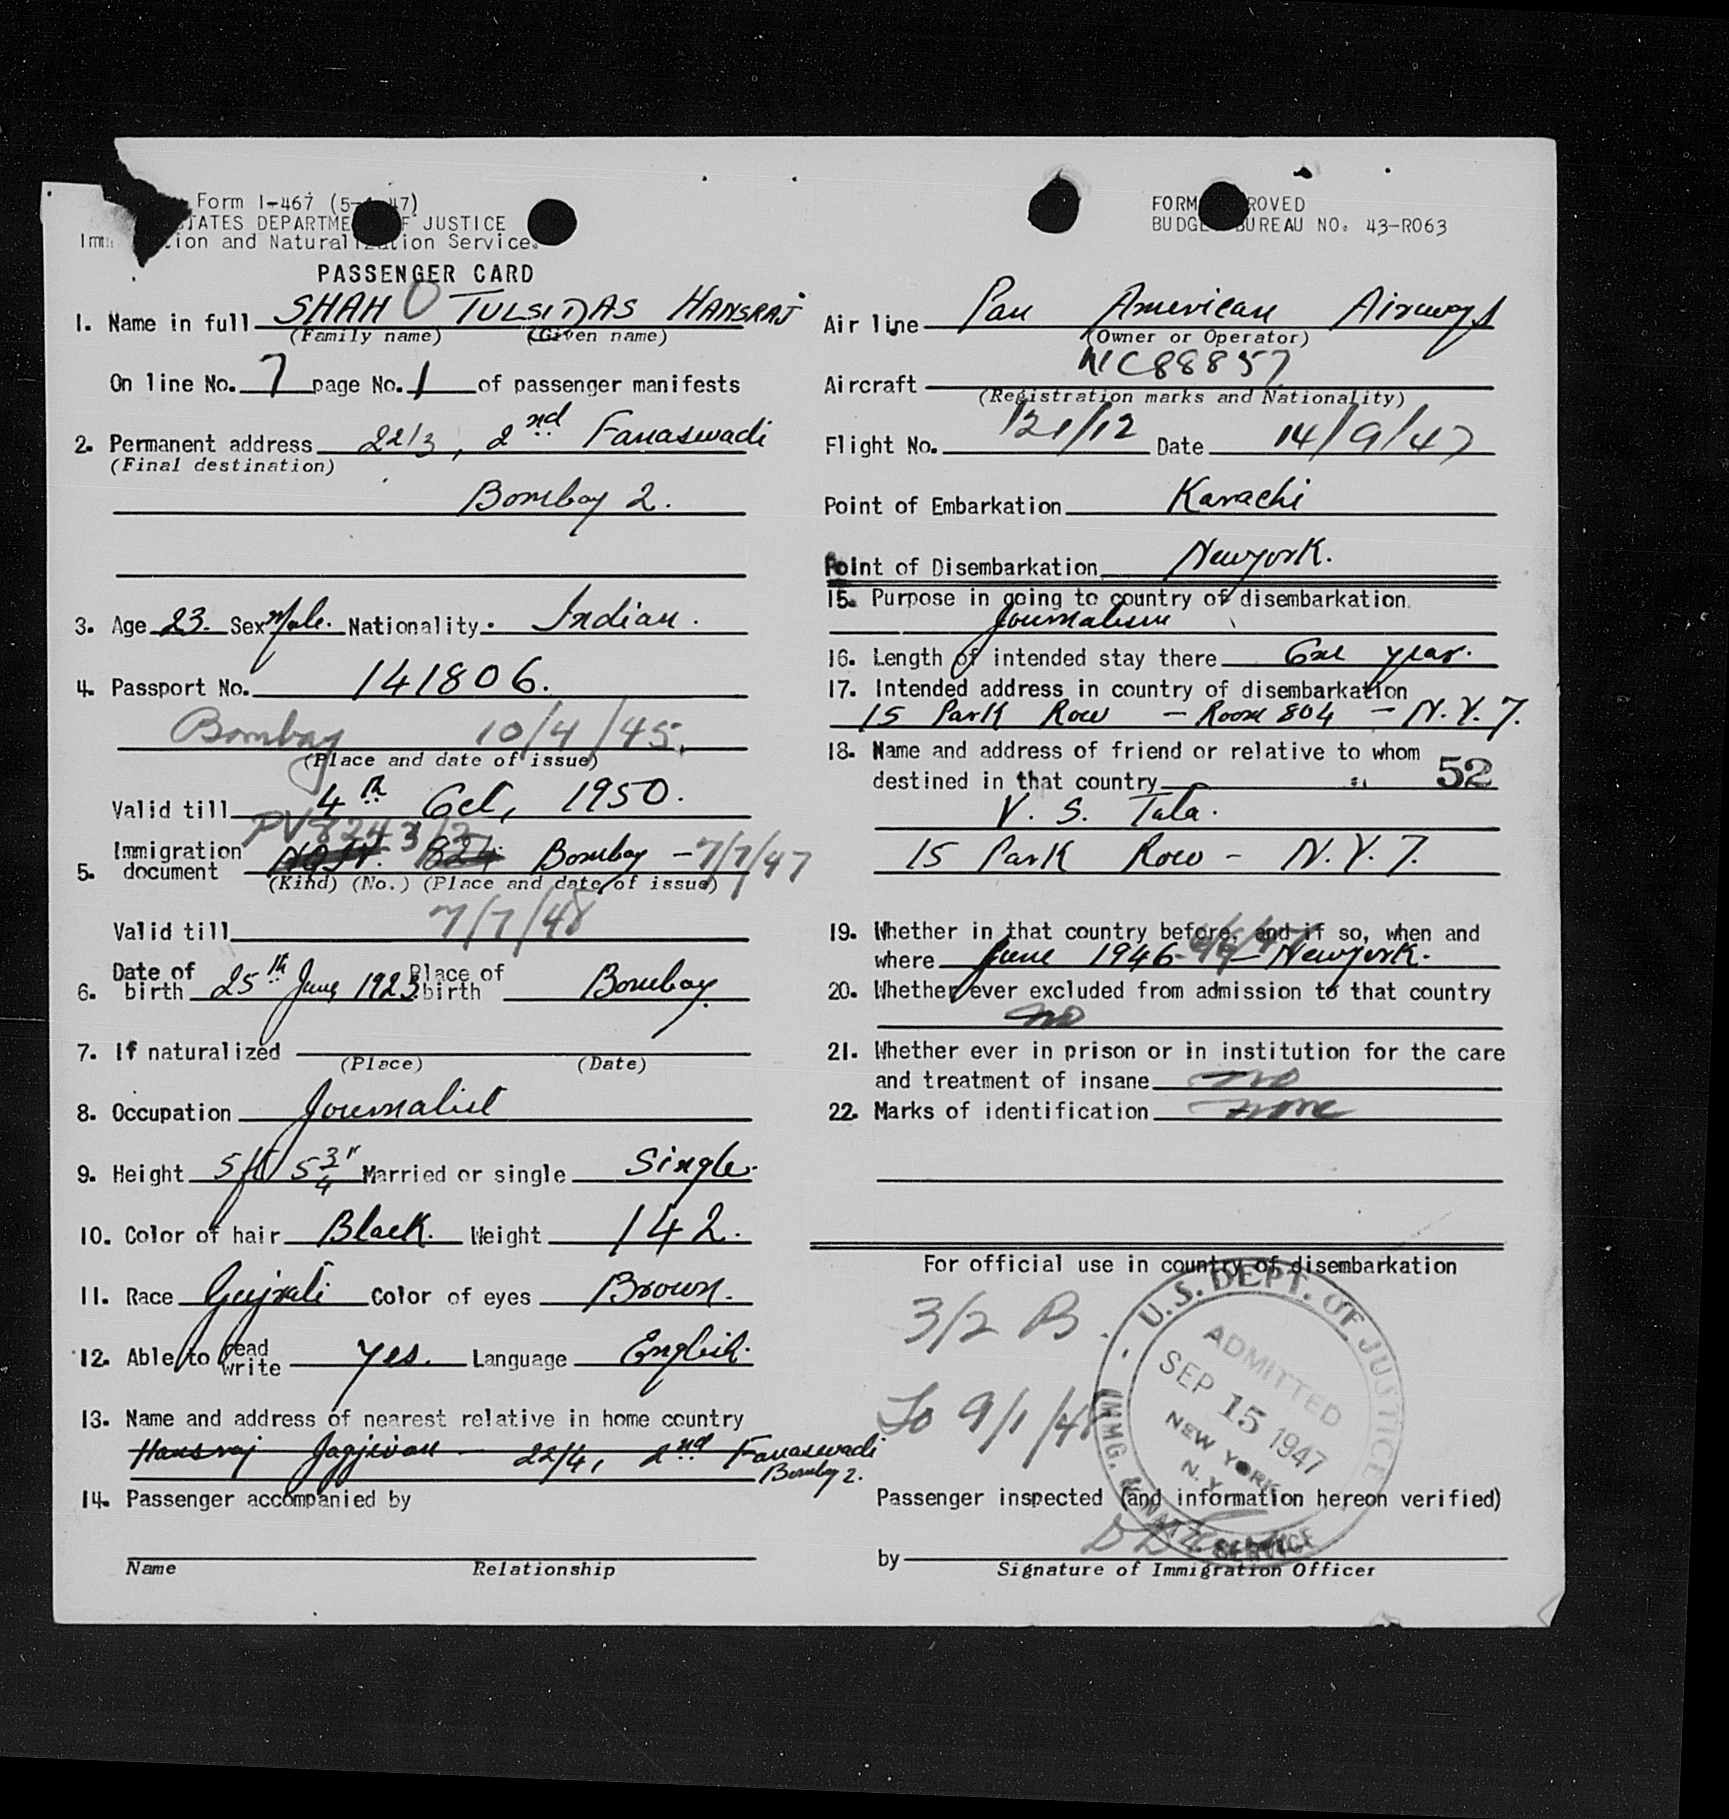 Form I-467 (5- -47)
STATES DEPARTME OF JUSTICE
Imm tion and Naturalization Service.
PASSENGER CARD
1. Name in full SHAH TULSIDAS HANSRAJ
(Family name) (Given name)
On line No. 7 page No. 1 of passenger manifests
2. Permanent address 22/3, 2nd Fanaswadi
(Final destination)
Bombay 2.
3. Age 23. Sex Male. Nationality. Indian.
4. Passport No. 141806.
Bombay 10/4/45.
(Place and date of issue)
Valid till 4th Oct, 1950.
PV 8243/2
5. Immigration document Bombay - 7/7/47
(Kind) (No.) (Place and date of issue)
Valid till 7/7/48
6. Date of birth 25th 1923 Place of birth Bombay.
7. If naturalized
(Place) (Date)
8. Occupation Journalist
9. Height 5ft 5 3/4" Married or single Single.
10. Color of hair Black. Weight 142.
11. Race Gujrati Color of eyes Brown.
12. Able to read write yes. Language English.
13. Name and address of nearest relative in home country
Hansraj Jagjivan - 22/4, 2nd Fanaswadi
Bombay 2.
14. Passenger accompanied by
Name Relationship
FORM APPROVED
BUDGET BUREAU NO. 43-R063
Air line Pan American Airways
(Owner or Operator)
Aircraft NC88857
(Registration marks and Nationality)
Flight No. 121/12 Date 14/9/47
Point of Embarkation Karachi
Point of Disembarkation Newyork.
15. Purpose in going to country of disembarkation.
Journalism
16. Length of intended stay there One year.
17. Intended address in country of disembarkation
15 Park Row - Room 804 - N.Y.7.
18. Name and address of friend or relative to whom
destined in that country 52
V. S. Tala.
15 Park Row - N.Y.7.
19. Whether in that country before, and if so, when and
where June 1946 - Newyork.
20. Whether ever excluded from admission to that country
no
21. Whether ever in prison or in institution for the care
and treatment of insane no
22. Marks of identification none
For official use in country of disembarkation
3/2 B.
To 9/1/48
U.S. DEPT. OF JUSTICE
ADMITTED
SEP 15 1947
NEW YORK
N.Y.
IMMG. & NATZ. SERVICE
Passenger inspected (and information hereon verified)
by
Signature of Immigration Officer